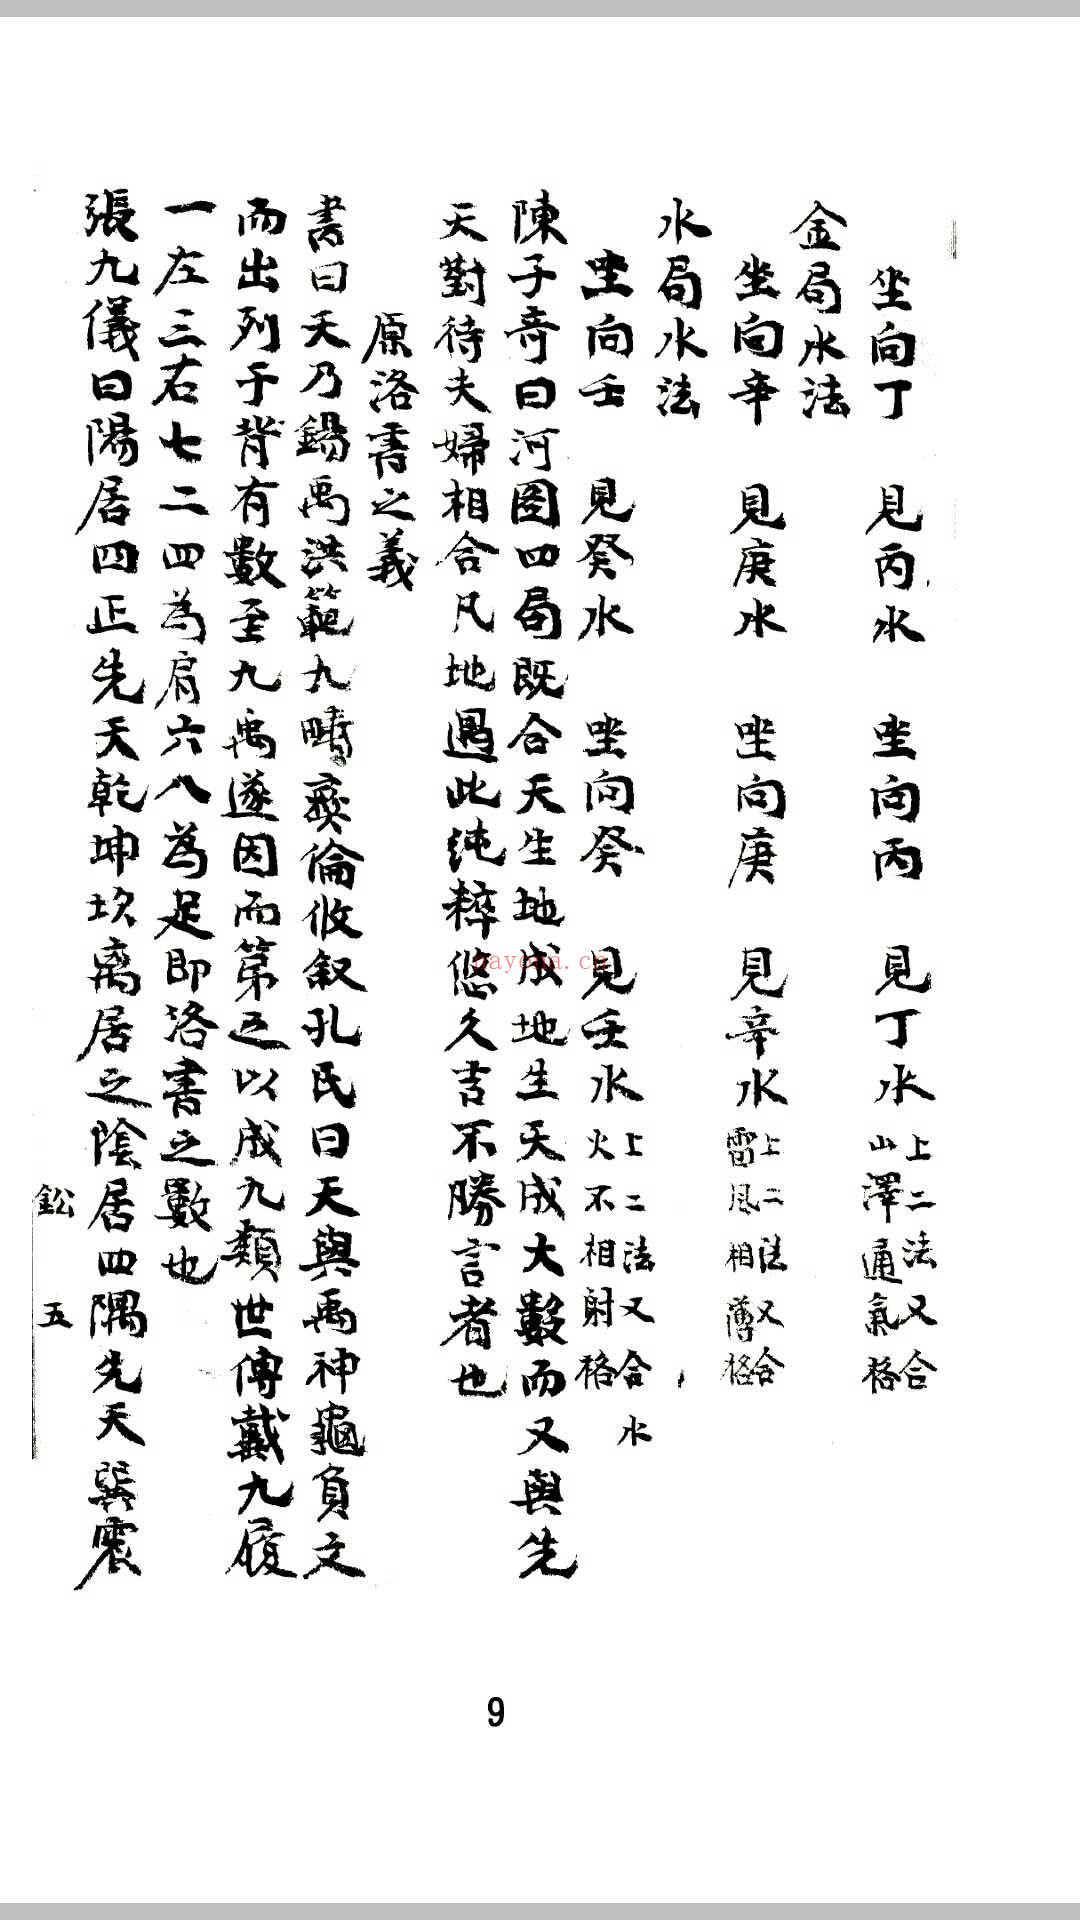 坐向丁　見丙水　坐向丙　見丁水上二法又合山澤通氣格
金局水法
坐向辛　見庚水　坐向庚　見辛水上二法又合雷風相薄格
水局水法
坐向壬　見癸水　坐向癸　見壬水上二法又合水火不相射格
陳子奇曰河圖四局既合天生地成地生天成大數而又與先
天對待夫婦相合凡地遇此純粹悠久吉不勝言者也
原洛書之義
書曰天乃錫禹洪範九疇彝倫攸叙孔氏曰天與禹神龜負文
而出列于背有數至九禹遂因而第之以成九類世傳戴九履
一左三右七二四為肩六八為足即洛書之數也
張九儀曰陽居四正先天乾坤坎离居之陰居四隅先天巽震
鈆 五
9
nayona.cn